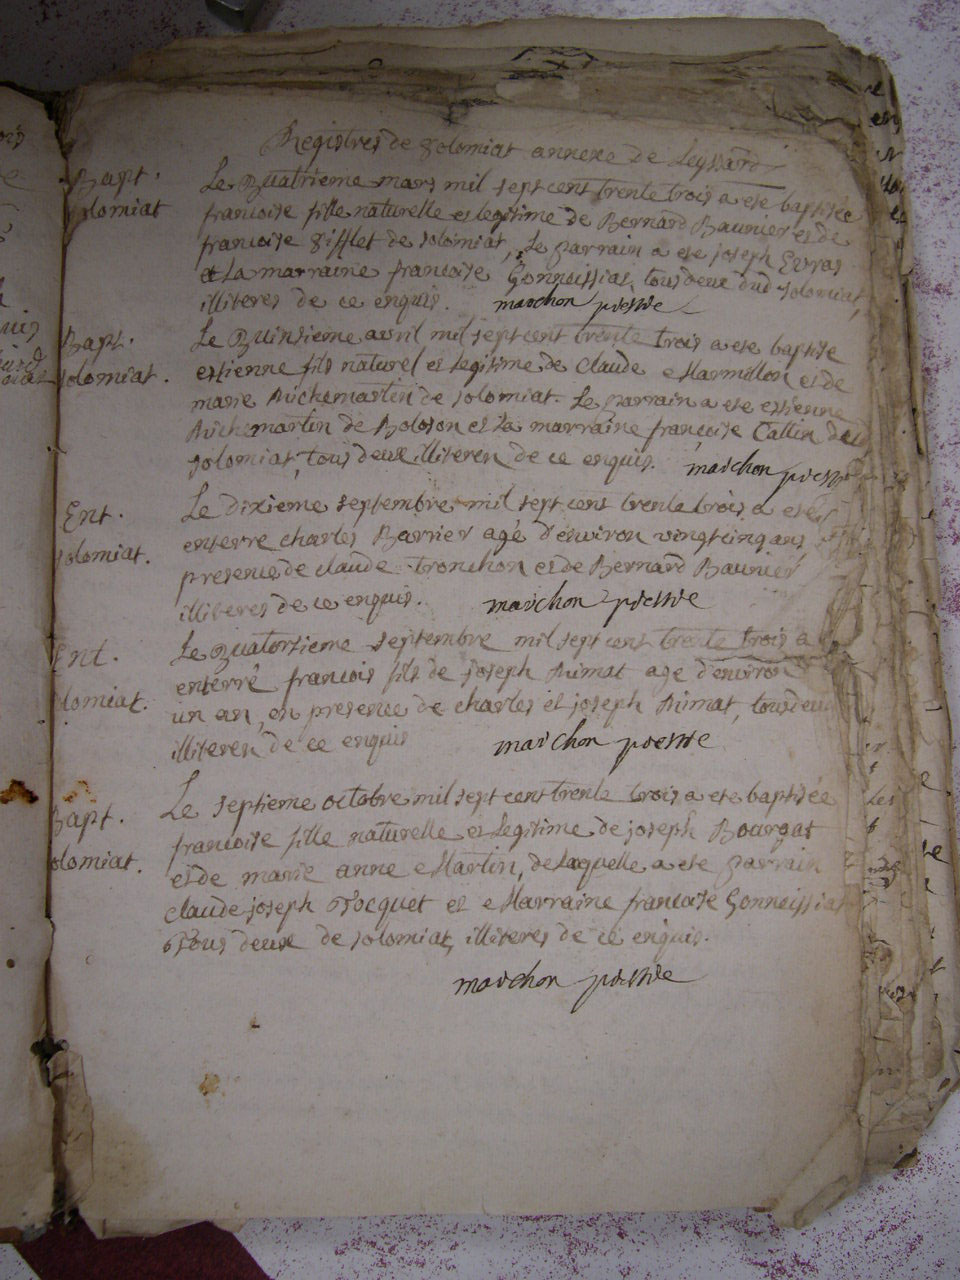 Registres de Solomiat annexe de Leyssard
Bapt.
olomiat
Le Quatrieme mars mil sept cent trente trois a ete baptisée
francoise fille naturelle et legitime de Bernard Baunier et de
francoise Sifflet de solomiat, Le parrain a ete joseph
et La marraine francoise Gonneissiat, tous deux dud solomiat,
illiteres de ce enquis. marchon prestre
Bapt.
solomiat.
Le Quinsieme avril mil sept cent trente trois a ete baptise
estienne fils naturel et Legitime de claude Marmillon et de
marie Fuchemartin de solomiat. Le parrain a ete estienne
Fuchemartin de Boloson et La marraine francoise Callin de
solomiat, tous deux illiteres de ce enquis. marchon prestre
Ent.
solomiat.
Le dixieme septembre mil sept cent trente trois a ete
enterre charles Barrier agé d'environ vingtcinq ans
presence de claude tronchon et de Bernard Baunier
illiteres de ce enquis. marchon prestre
Ent.
lomiat.
Le Quatorzieme septembre mil sept cent trente trois a
enterré francois fils de joseph Aimat age d'environ
un an, en presence de charles et joseph Aimat, tous deux
illiteres de ce enquis marchon prestre
Bapt.
olomiat.
Le septieme octobre mil sept cent trente trois a ete baptisée
francoise fille naturelle et Legitime de joseph Bourgat
et de marie anne Martin, de Laquelle a ete parrain
claude joseph Tocquet et Marraine francoise Gonneissiat
Tous deux de solomiat, illiteres de ce enquis.
marchon prestre